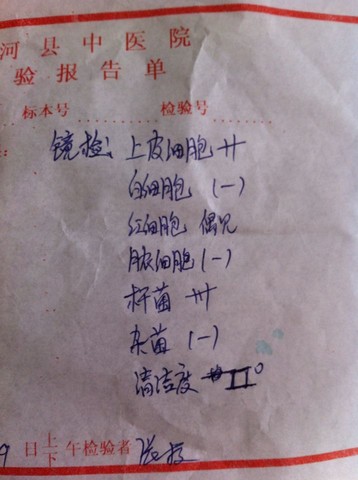 河县中医院
验报告单
标本号 检验号
镜检: 上皮细胞 ++
白细胞 (一)
红细胞 偶见
脓细胞 (一)
杆菌 +++
杂菌 (一)
清洁度 II°
9 日上下午检验者